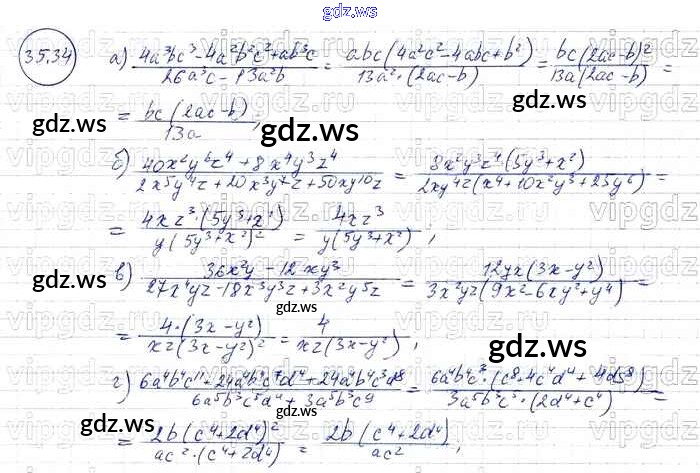 gdz.ws
35.34 а) (4a³bc³ - 4a²b²c² + ab³c)/(26a³c - 13a²b) = abc(4a²c² - 4abc + b²)/(13a²·(2ac - b)) = bc(2ac - b)²/(13a(2ac - b)) =
= bc(2ac - b)/(13a);
gdz.ws gdz.ws
б) (40x²y⁶z⁴ + 8x⁴y³z⁴)/(2x⁵y⁴z + 20x³y⁷z + 50xy¹⁰z) = 8x²y³z⁴(5y³ + x²)/(2xy⁴z(x⁴ + 10x²y³ + 25y⁶)) =
= 4xz³·(5y³ + x²)/(y(5y³ + x²)²) = 4xz³/(y(5y³ + x²));
в) (36x²y - 12xy³)/(27x⁴yz - 18x³y³z + 3x²y⁵z) = 12yx(3x - y²)/(3x²yz(9x² - 6xy² + y⁴)) =
gdz.ws gdz.ws
= 4·(3x - y²)/(xz(3x - y²)²) = 4/(xz(3x - y²));
gdz.ws
г) (6a⁴b⁴c¹¹ + 24a⁴b⁴c⁷d⁴ + 24a⁴b⁴c³d⁸)/(6a⁵b³c⁵d⁴ + 3a⁵b³c⁹) = 6a⁴b⁴c³·(c⁸ + 4c⁴d⁴ + 4d⁸)/(3a⁵b³c⁵·(2d⁴ + c⁴)) =
= 2b(c⁴ + 2d⁴)²/(ac²·(c⁴ + 2d⁴)) = 2b(c⁴ + 2d⁴)/(ac²);
gdz.ws gdz.ws